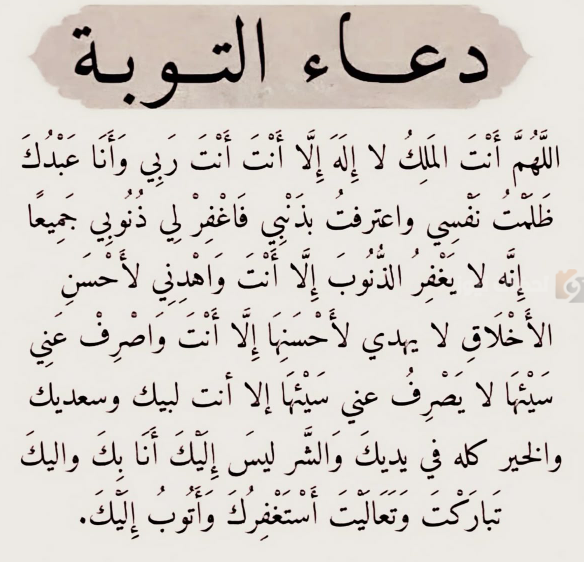 دعاء التوبة
اللَّهُمَّ أَنْتَ المَلِكُ لا إِلَهَ إِلَّا أَنْتَ أَنْتَ رَبِي وَأَنَا عَبْدُكَ
ظَلَمْتُ نَفْسِي واعترفتُ بذَنْبِي فَاغْفِرْ لِي ذُنُوبِي جَمِيعًا
إِنَّه لا يَغْفِرُ الذُّنُوبَ إِلَّا أَنْتَ وَاهْدِنِي لأَحْسَنِ
الأَخْلَاقِ لا يهدي لأَحْسَنِهَا إِلَّا أَنْتَ وَاصْرِفْ عَنِي
سَيْئَهَا لا يَصْرِفُ عني سَيْئَهَا إلا أنت لبيك وسعديك
والخير كله في يديكَ وَالشَّر ليسَ إِلَيْكَ أَنَا بِكَ واليكَ
تَبارَكْتَ وَتَعَالَيْتَ أَسْتَغْفِرُكَ وَأَتُوبُ إِلَيْكَ.